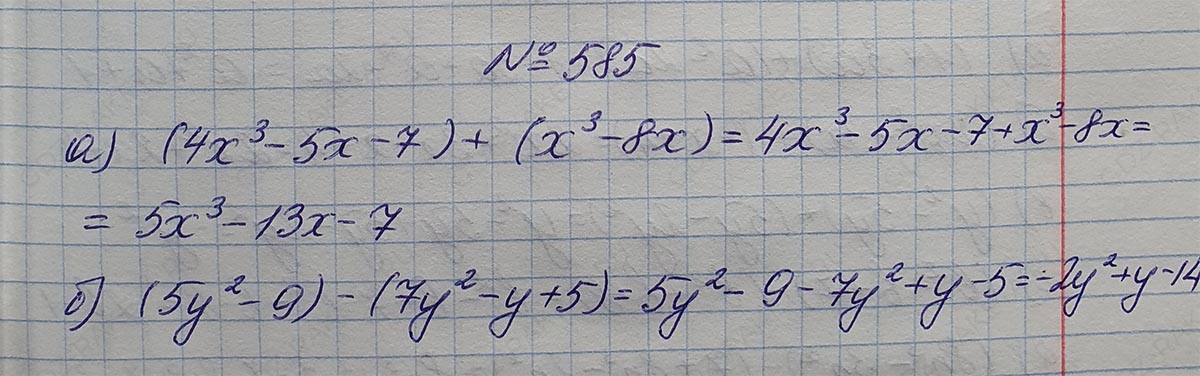 № 585
а) (4x³ - 5x - 7) + (x³ - 8x) = 4x³ - 5x - 7 + x³ - 8x =
= 5x³ - 13x - 7
б) (5y² - 9) - (7y² - y + 5) = 5y² - 9 - 7y² + y - 5 = -2y² + y - 14